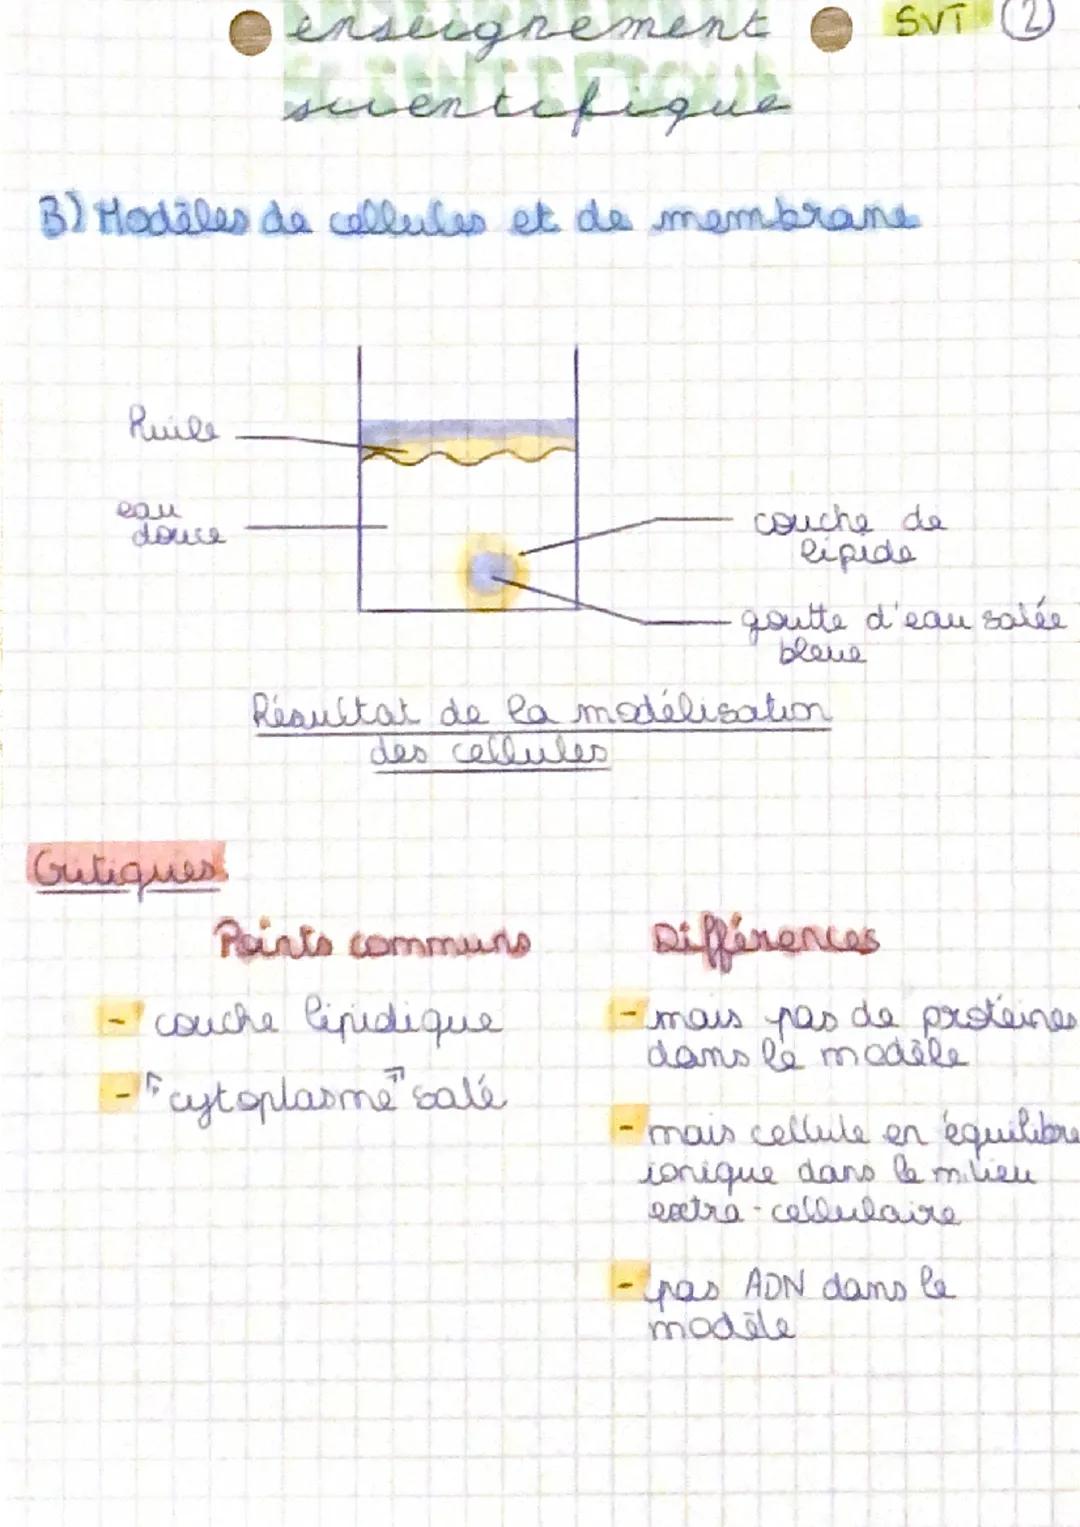 enseignement
SVT 2
SCIENTIFIQUE
scientifique
B) Modèles de cellules et de membrane
huile
eau
douce
couche de
lipide
goutte d'eau salée
bleue
Résultat de la modélisation
des cellules
Critiques
Points communs
Différences
- couche lipidique
- mais pas de protéines
dans le modèle
- "cytoplasme" salé
- mais cellule en équilibre
ionique dans le milieu
extra-cellulaire
- pas ADN dans le
modèle